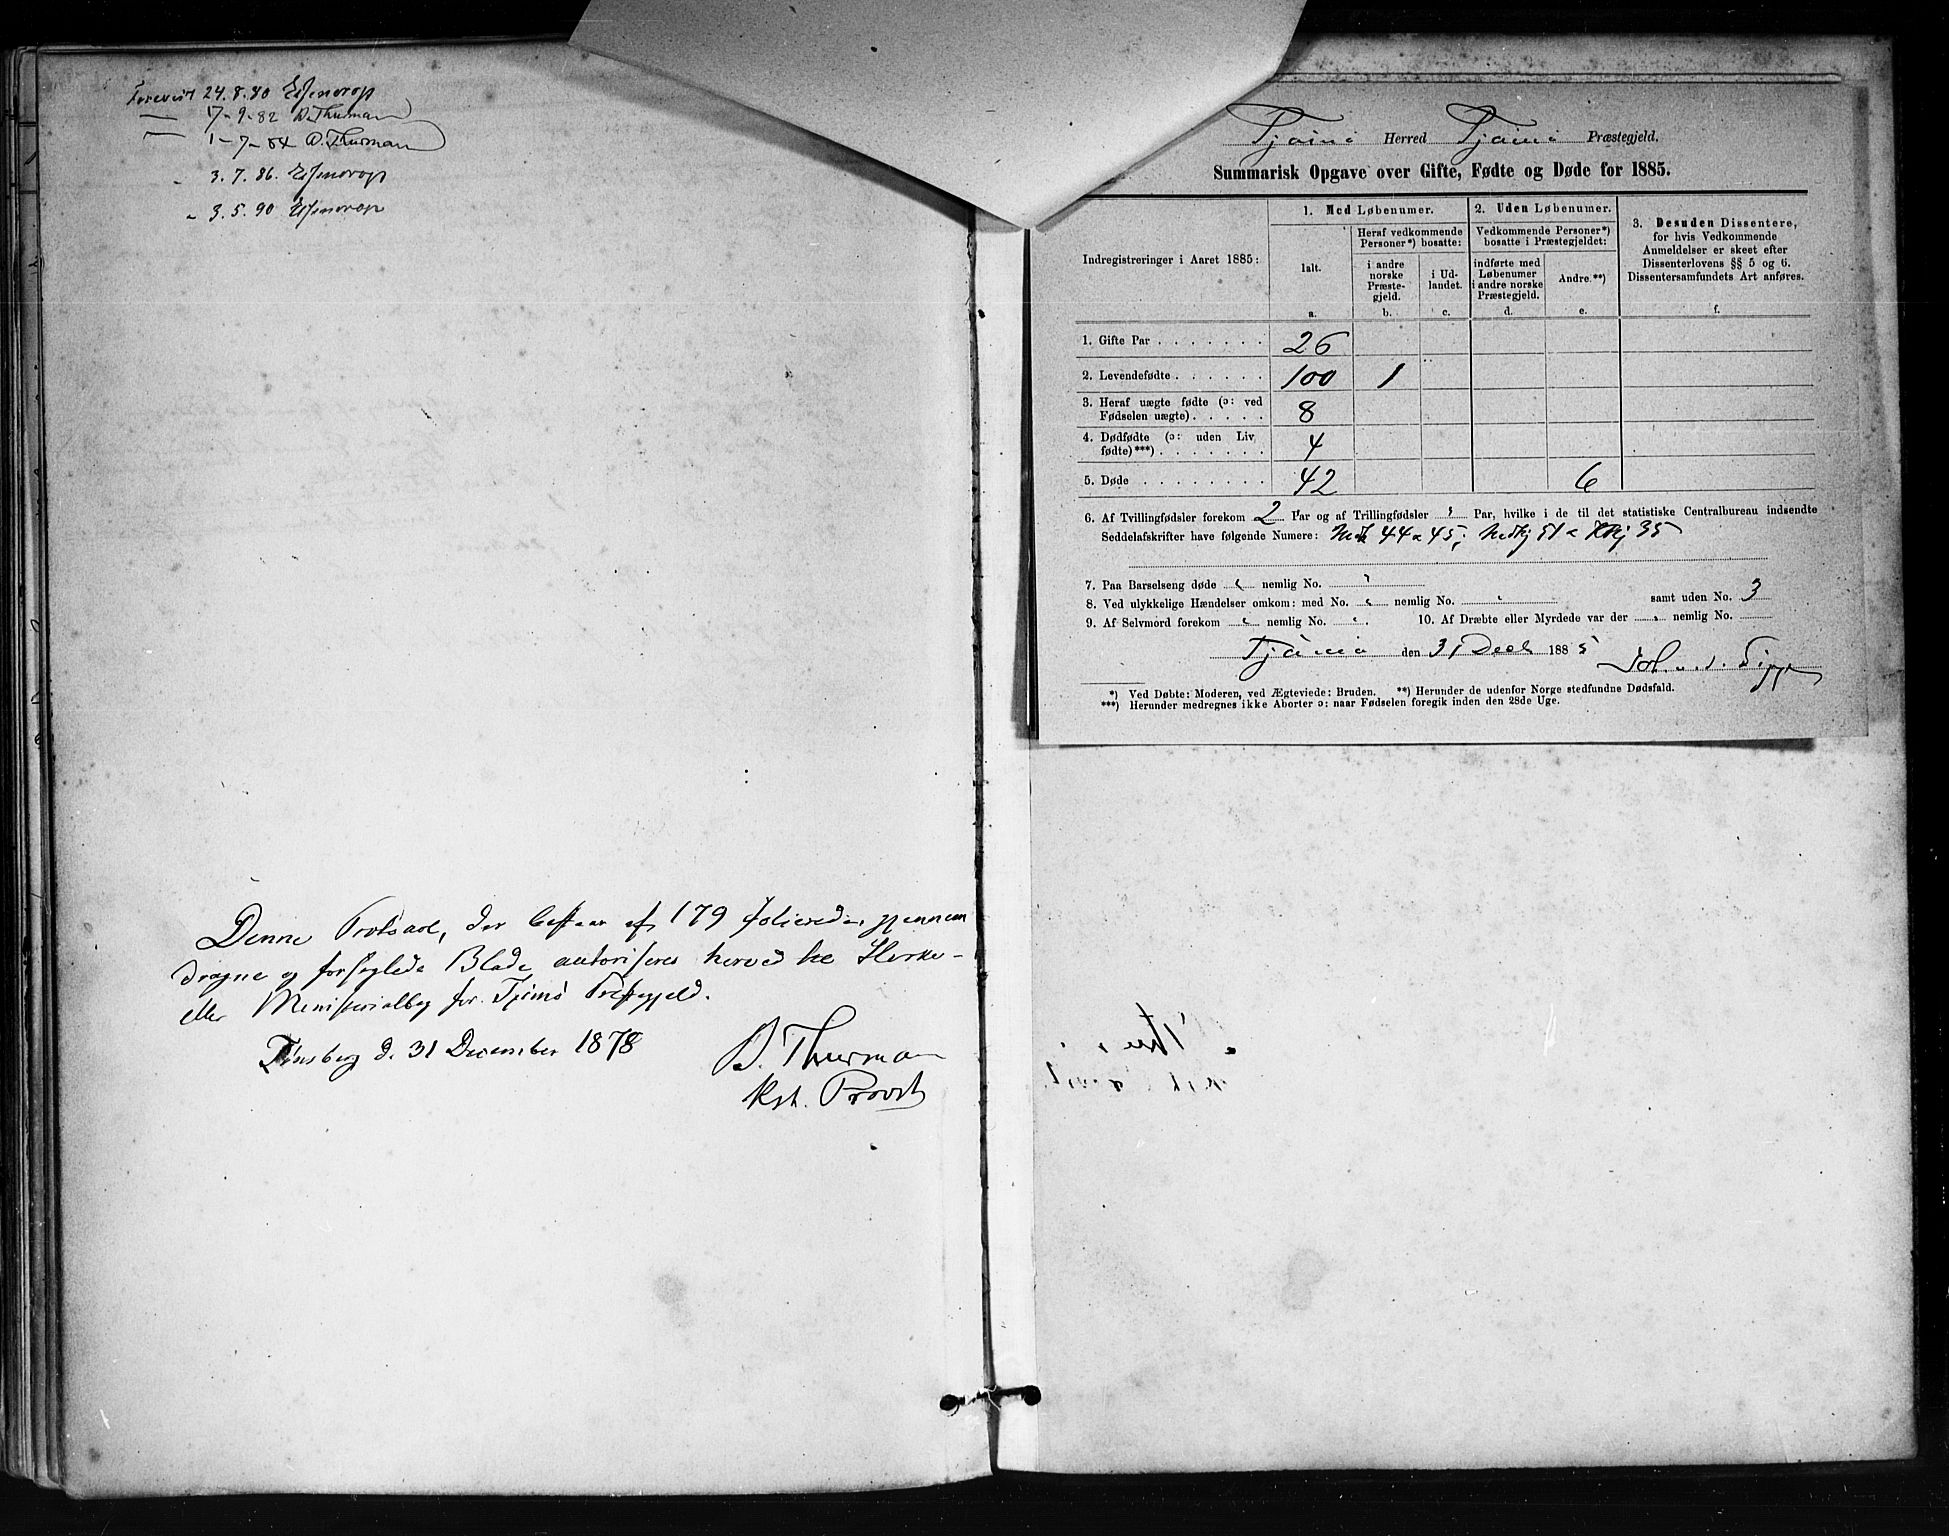 Forevist 24.8.80 Essendrop
— 7-9-82 D. Thurman
— 1-7-84 D. Thurman
" 3.7.86. Essendrop
" 3.5.90 Essendrop
Denne Protocol, der bestaar af 179 folierede, gjennem
dragne og forseglede Blade autoriseres herved til Kirke-
eller Ministerialbog for Tjømø Præstegjeld.
Tønsberg d. 31 December 1878
D. Thurman
Kst. Provst
Tjømø Herred Tjømø Præstegjeld.
Summarisk Opgave over Gifte, Fødte og Døde for 1885.
Indregistreringer i Aaret 1885:
1. Med Løbenumer.
Ialt.
a.
Heraf vedkommende
Personer*) bosatte:
i andre
norske
Præste-
gjeld.
b.
i Ud-
landet.
c.
2. Uden Løbenumer.
Vedkommende Personer*)
bosatte i Præstegjeldet:
indførte med
Løbenumer
i andre norske
Præstegjeld.
d.
Andre.**)
e.
3. Desuden Dissentere,
for hvis Vedkommende
Anmeldelser er skeet efter
Dissenterlovens §§ 5 og 6.
Dissentersamfundets Art anføres.
f.
1. Gifte Par . . . . . . . 26
2. Levendefødte . . . . . . 100 1
3. Heraf uægte fødte (ɔ: ved
Fødselen uægte) . . . . . 8
4. Dødfødte (ɔ: uden Liv
fødte)***) . . . . . . . . 4
5. Døde . . . . . . . . . 42 6
6. Af Tvillingfødsler forekom 2 Par og af Trillingfødsler " Par, hvilke i de til det statistiske Centralbureau indsendte
Seddelafskrifter have følgende Numere: 44 & 45; 51 & 35
7. Paa Barselseng døde " nemlig No. "
8. Ved ulykkelige Hændelser omkom: med No. " nemlig No. " samt uden No. 3
9. Af Selvmord forekom " nemlig No. " . 10. Af Dræbte eller Myrdede var der " nemlig No.
Tjømø den 31 Decb 1885
*) Ved Døbte: Moderen, ved Ægteviede: Bruden. **) Herunder de udenfor Norge stedfundne Dødsfald.
***) Herunder medregnes ikke Aborter ɔ: naar Fødselen foregik inden den 28de Uge.